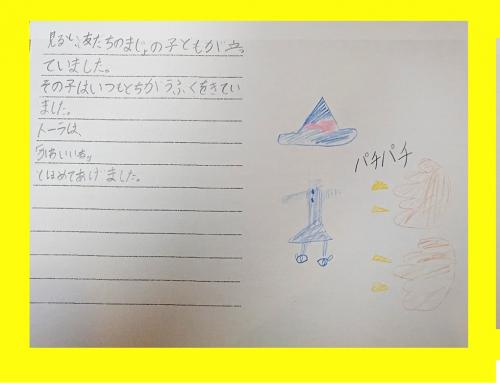 見ると、友だちのまじょの子どもが立っ
ていました。
その子はいつもとちがうふくをきてい
ました。
トーラは、
とほめてあげました。
パチパチ